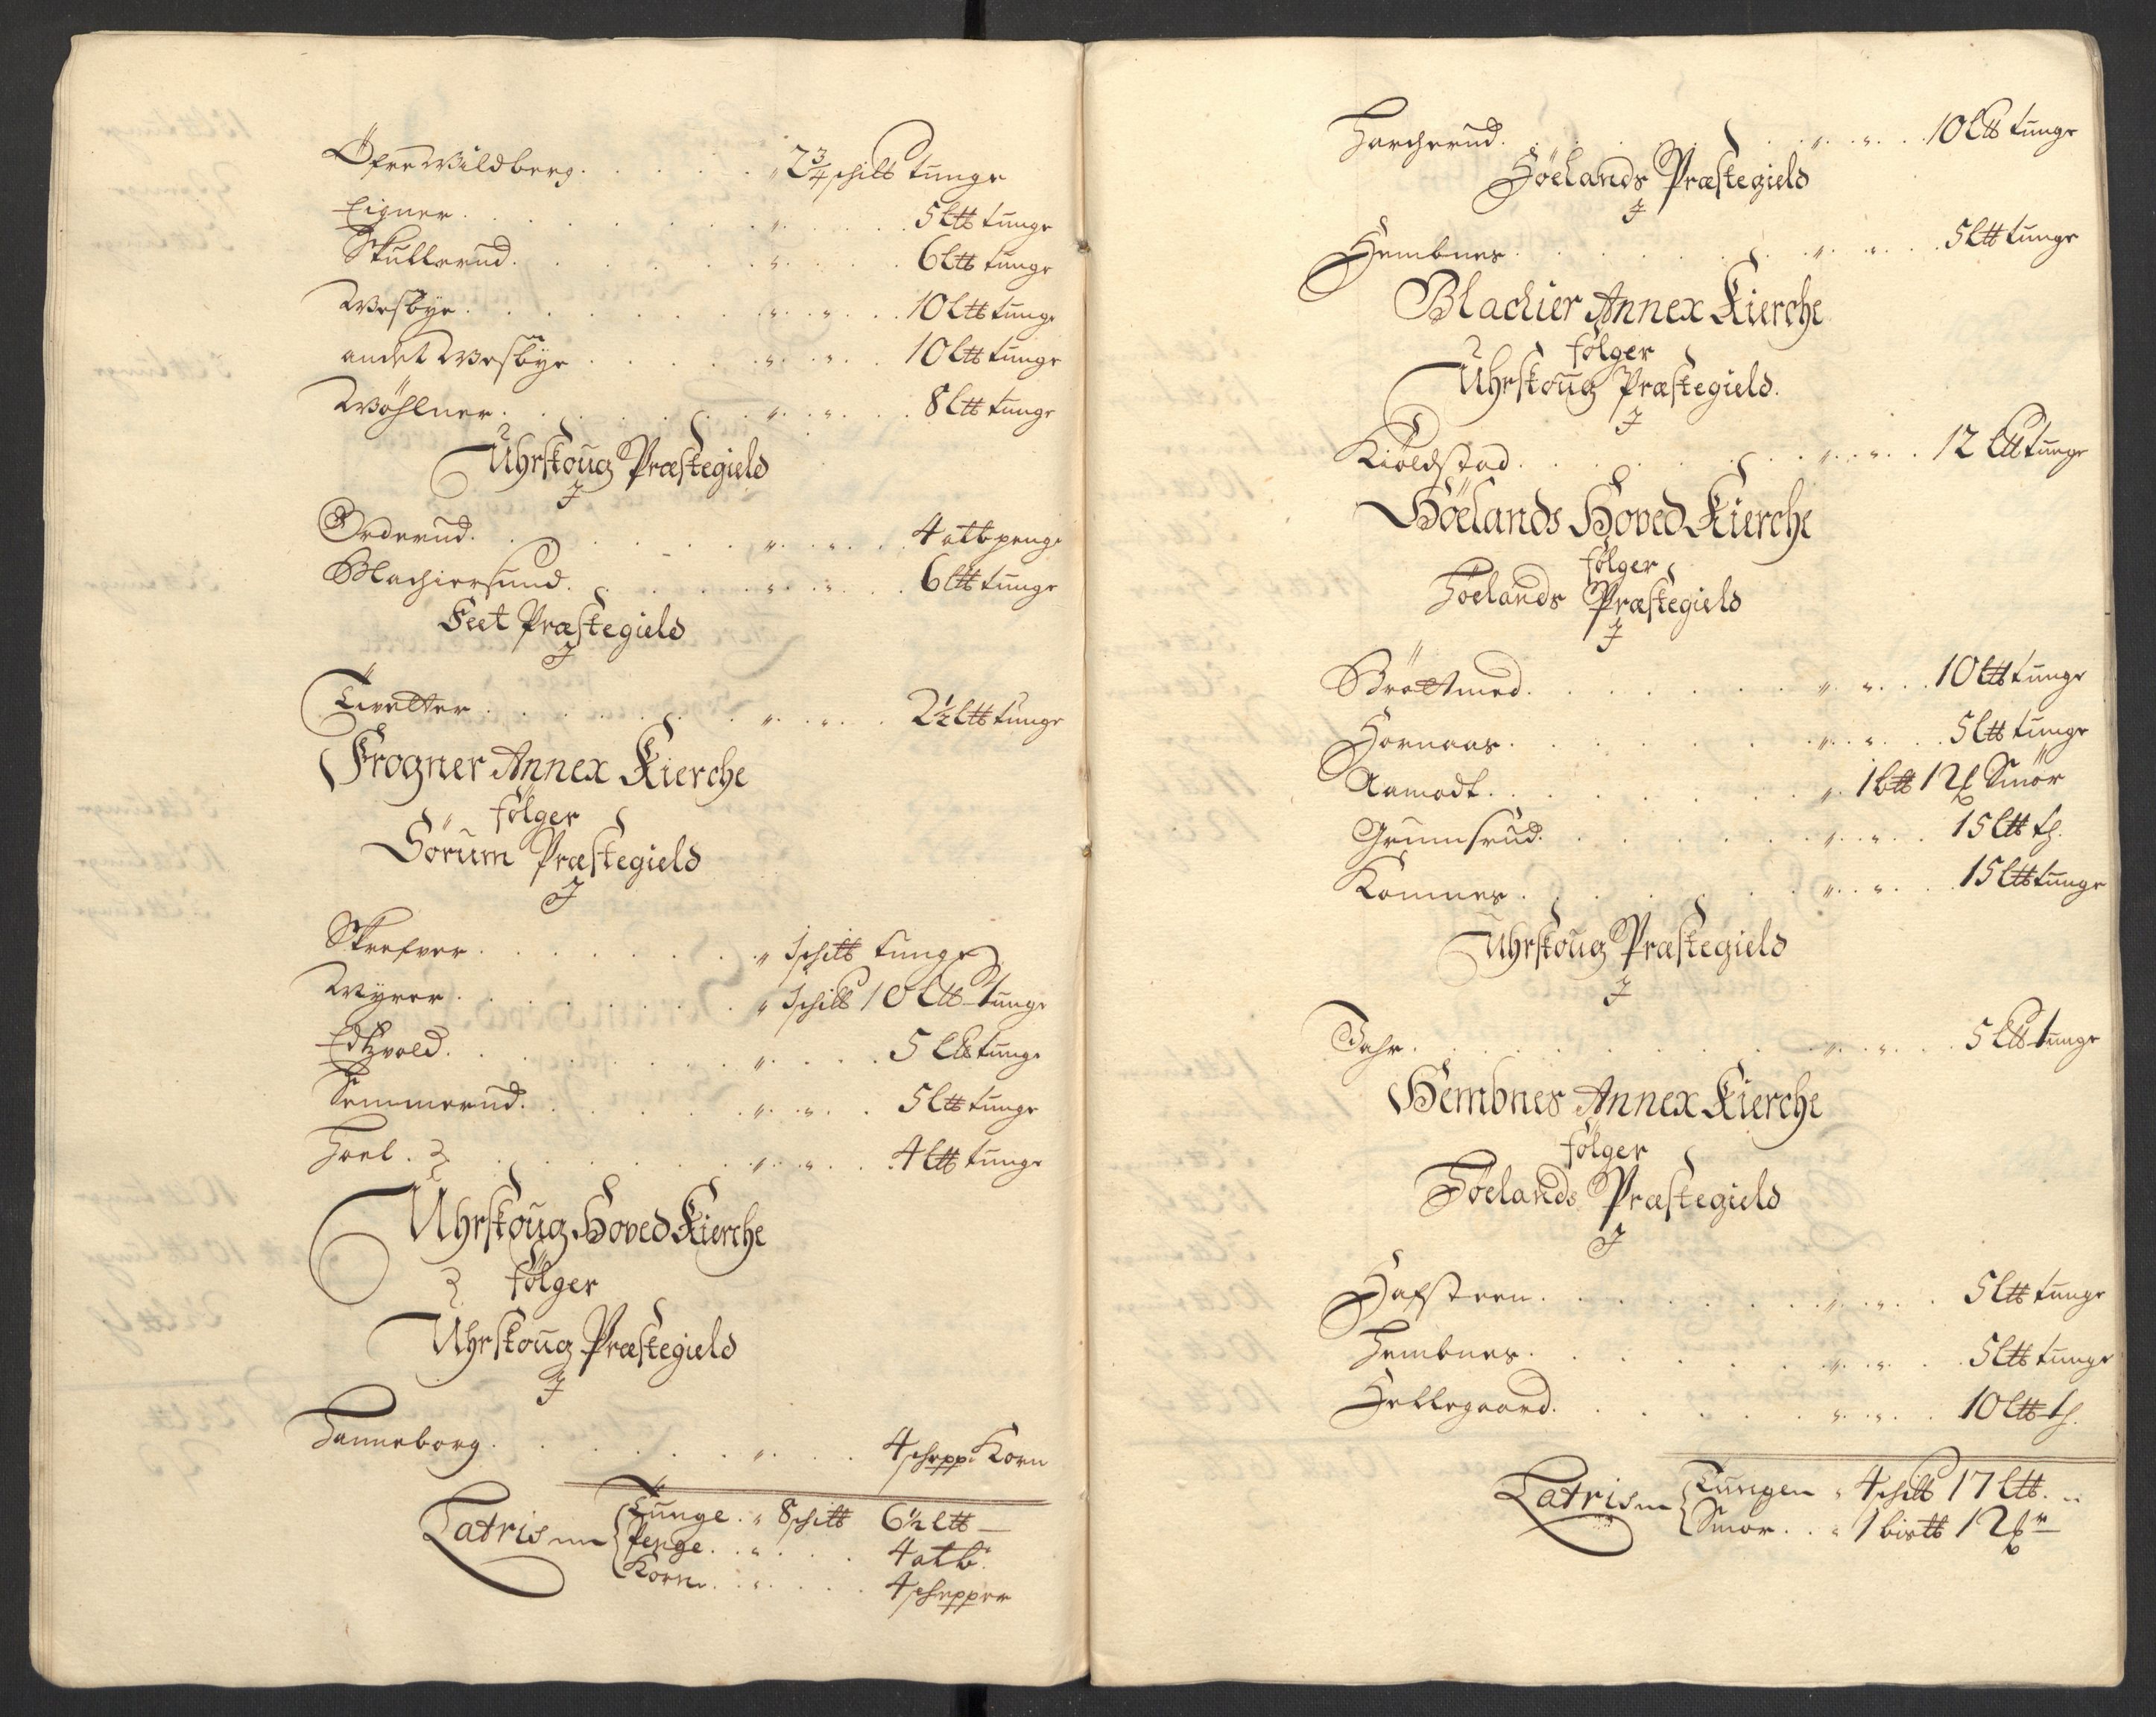 Öfre Wildberg . . . . . „ 2¾ schitt tunge
Eigner . . . . . „ . . 5 Ltt tunge
Skullerud . . . . . „ . . 6 Ltt tunge
Wesbye . . . . . „ . „ . . 10 Ltt tunge
andet Wesbye . . . . „ . „ . . 10 Ltt tunge
Wöhlner . . . . . „ . „ . . 8 Ltt tunge
Uhrskoug Præstegield
J
Orderud . . . . . „ . „ . . 4 att penge
Blachiersund . . . . „ . „ . . 6 Ltt tunge
Feet Præstegield
J
Tivetter . . . . . „ . „ . . 2½ Ltt tunge
Frogner Annex Kierche
følger
Sörum Præstegield
J
Skrefver . . . . . „ 1 schitt tunge
Wyrer . . . . . „ 1 schitt 10 Ltt tunge
Edtzvold . . . . . „ . . 5 Ltt tunge
Semmerud . . . . . „ . „ . 5 Ltt tunge
Hoel . . . . . „ . „ . . 4 Ltt tunge
Uhrskoug Hoved Kierche
følger
Uhrskoug Præstegield
J
Hanneborg . . . . . „ . . 4 schepp: Korn
Latris Tunge . „ 8 schitt 6½ Ltt
Penge . . „ . . 4 att:
Korn . . „ . . 4 schepper
Harcherud . . . . . „ . „ . . 10 Ltt tunge
Höelands Præstegield
J
Hembnes . . . . . „ . „ . . 5 Ltt tunge
Blachier Annex Kierche
følger
Uhrskoug Præstegield.
J
Kiölstad . . . . . „ . „ . 12 Ltt tunge
Höelands Hoved Kierche
følger
Höelands Præstegield
J
Bröttmed . . . . . „ . „ . . 10 Ltt tunge
Hornaas . . . . . „ . „ . . 5 Ltt tunge
Aamodt . . . . . „ . 1 btt 12 Smör
Grumsrud . . . . . „ . „ . 15 Ltt th.
Komnes . . . . . „ . „ . . 15 Ltt tunge
Uhrskoug Præstegield
J
Dahr . . . . . „ . „ . . 5 Ltt tunge
Hembnes Annex Kierche
følger
Höelands Præstegield
J
Hafsteen . . . . . „ . „ . 5 Ltt tunge
Hembnes . . . . . „ . „ . . 5 Ltt tunge
Hellegaard . . . . . „ . „ . 10 Ltt th.
Latris Tungen „ 4 schitt 17 Ltt.
Smör . . „ 1 bistt 12